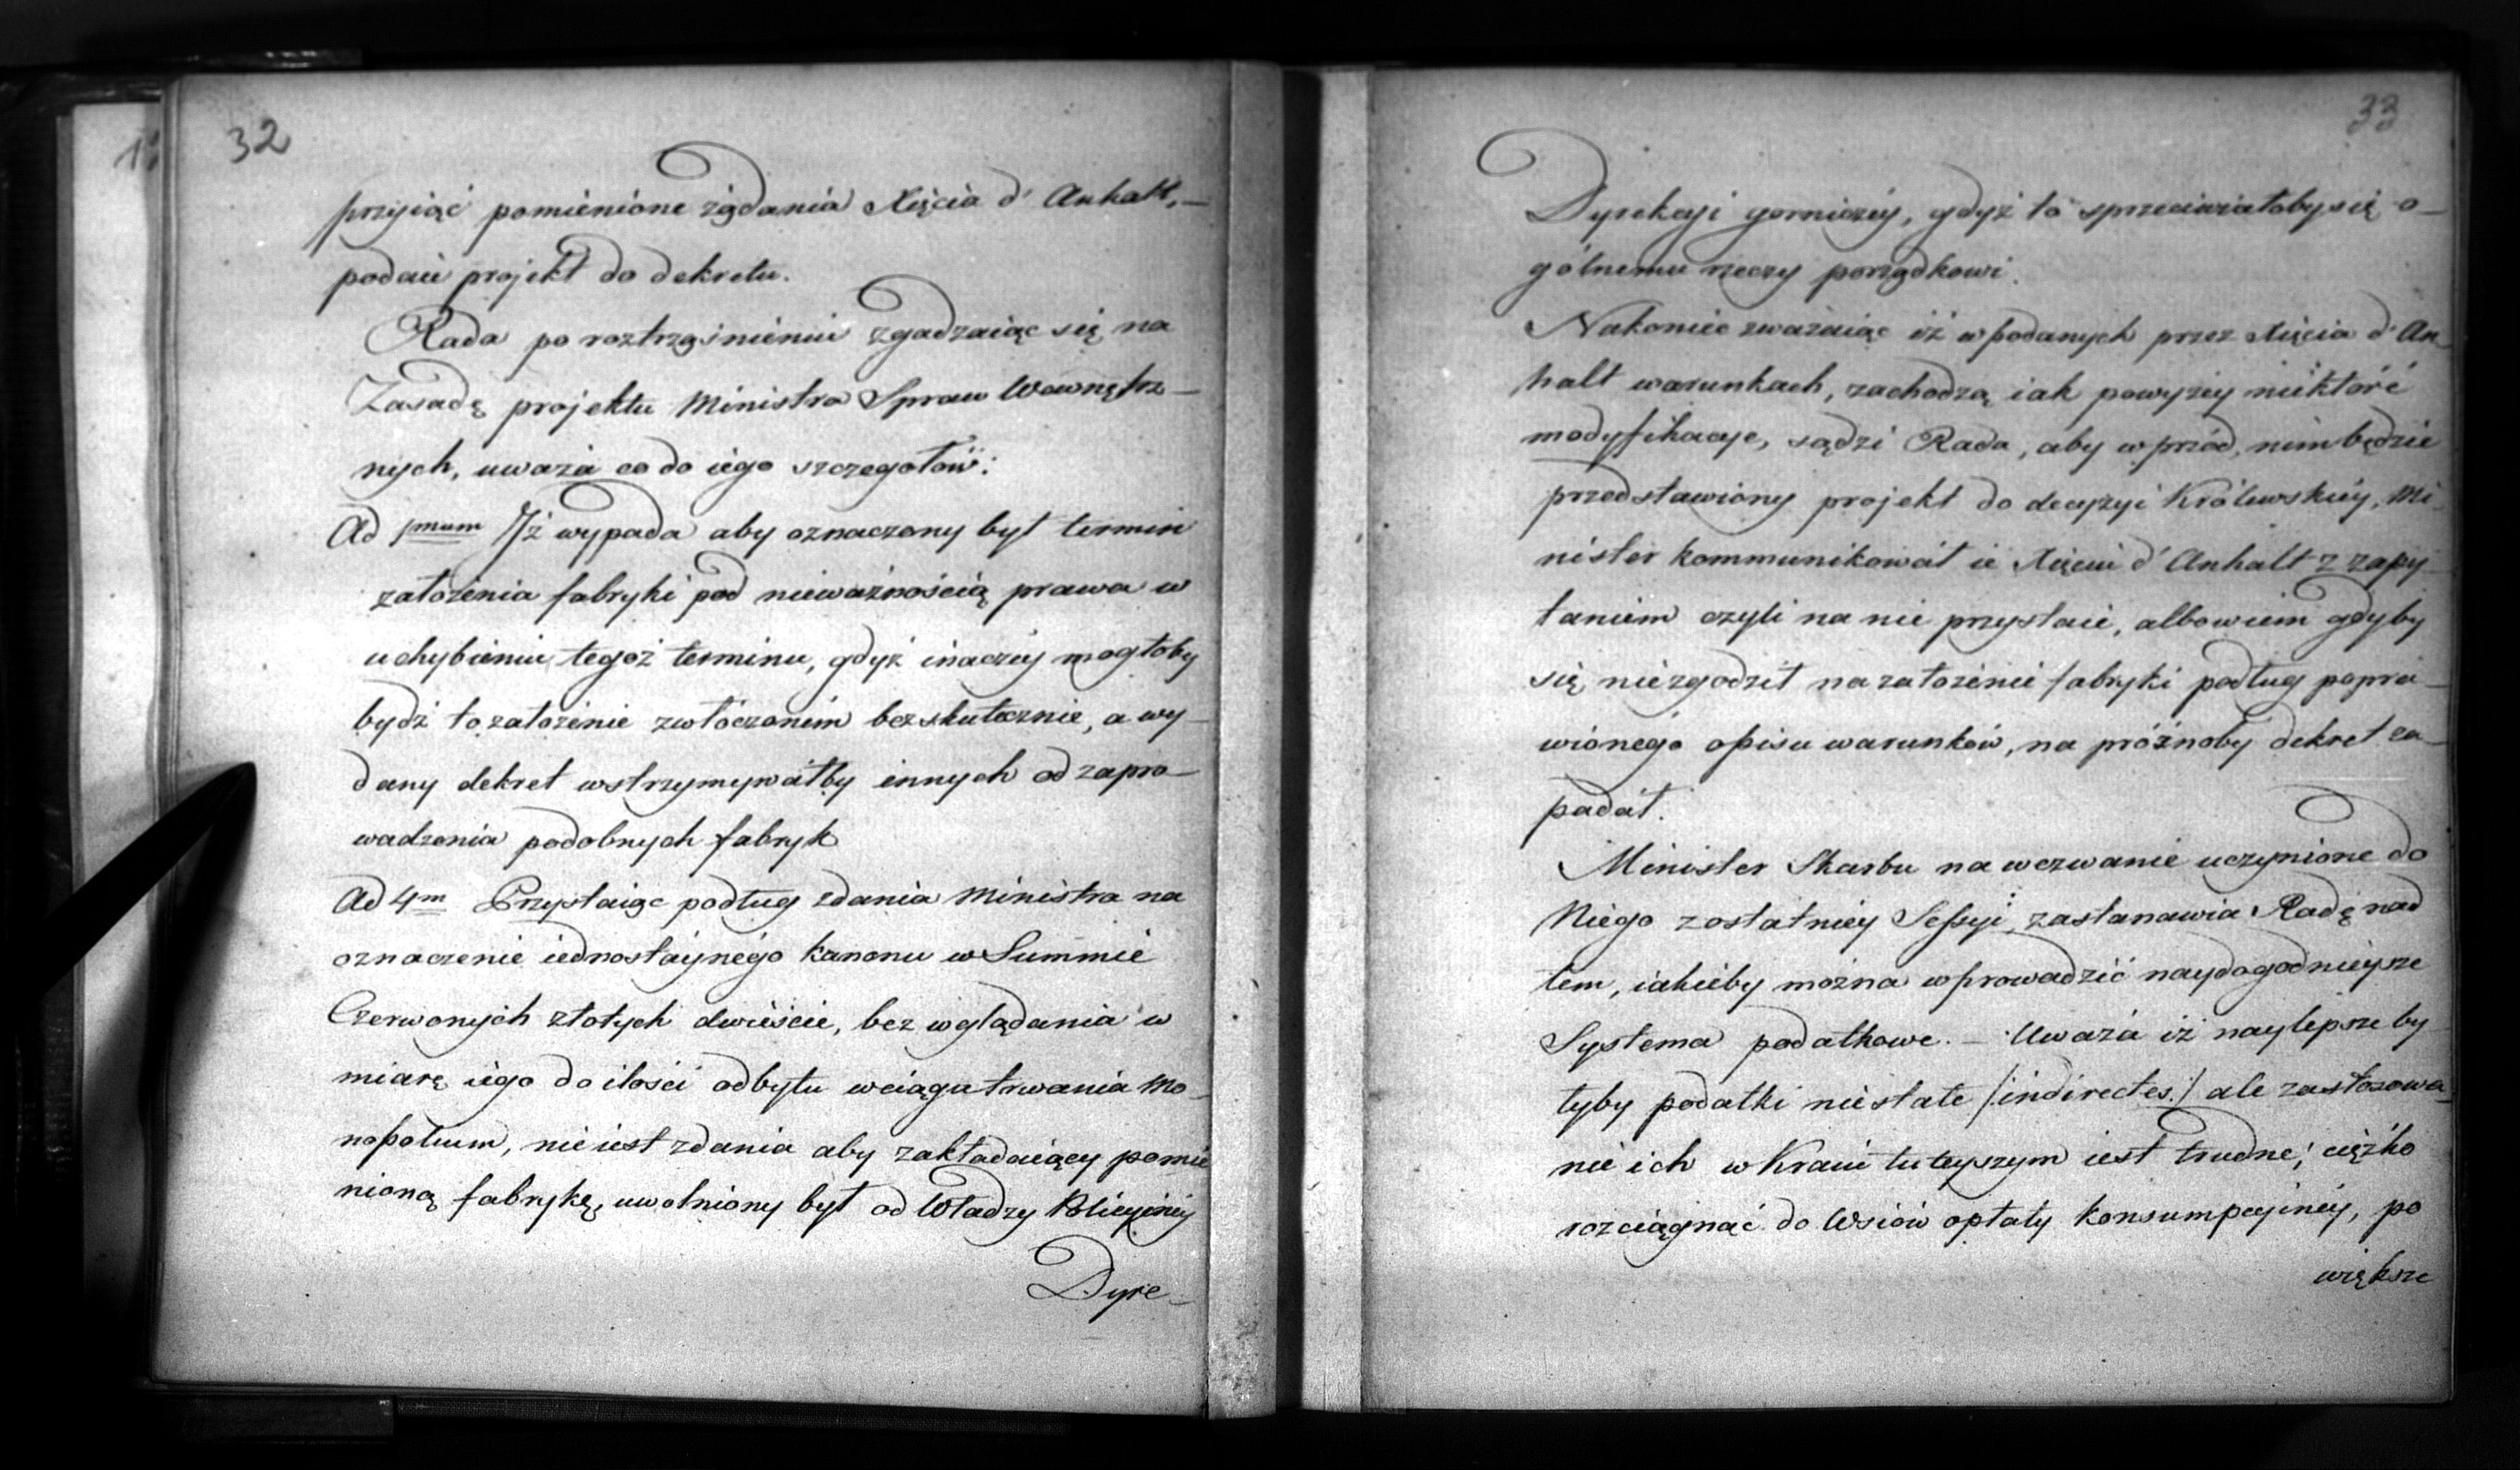 32
przyiąć pomienione żądania Xięcia d'Anhalt,—
podaie projekt do dekretu.
Rada po roztrząśnieniu zgadzaiąc się na
Zasadę projektu Ministra Spraw Wewnętrz—
nych, uważa co do iego szczegołów:
Ad 1mum Iż wypada aby oznaczony był termin
założenia fabryki pod nieważnością prawa w
uchybieniu tegoż terminu, gdyż inaczey mogłoby
bydź to założenie zwłóczonem bezskutecznie, a wy—
dany dekret wstrzymywałby innych od zapro—
wadzenia podobnych fabryk
Ad 4m Przystaiąc podług zdania Ministra na
oznaczenie iednostaynégo kanonu w Summie
Czerwonych złotych dwieście, bez wglądania w
miarę iego do ilości odbytu w ciągu trwania Mo—
nopolium, nie iest zdania aby zakładaiący pomie
nioną fabrykę, uwolniony był od Władzy Policyiney
Dyre—
33
Dyrekcyi gorniczey, gdyż to sprzeciwiałoby się o—
gólnemu rzeczy porządkowi.
Nakoniec zważaiąc iż w podanych przez Xięcia d'An—
halt warunkach, zachodzą iak powyżey niektóré
modyfikacye, sądzi Rada, aby wprzód, nim będzie
przedstawiony projekt do decyzyi Królewskiéy, Mi—
nister kommunikował ie Xięciu d'Anhalt z zapy—
taniem czyli na nie przystaie, albowiem gdyby
się nie zgodził na założenie fabryki podług popra—
wionégo opisu warunków, na próżnoby dekret za—
padał.
Minister Skarbu na wezwanie uczynione do
Niego z ostatniey Sessyi, zastanawia Radę nad
tem, iakieby można wprowadzić naydogodnieysze
Systema podatkowe. — Uważa iż naylepsze by—
łyby podatki niestałe /:indirectes:/ ale zastosowa—
nie ich w Kraiu tuteyszym iest trudne; ciężko
rozciągnąć do Wsiów opłaty konsumpcyinéy, po
większe